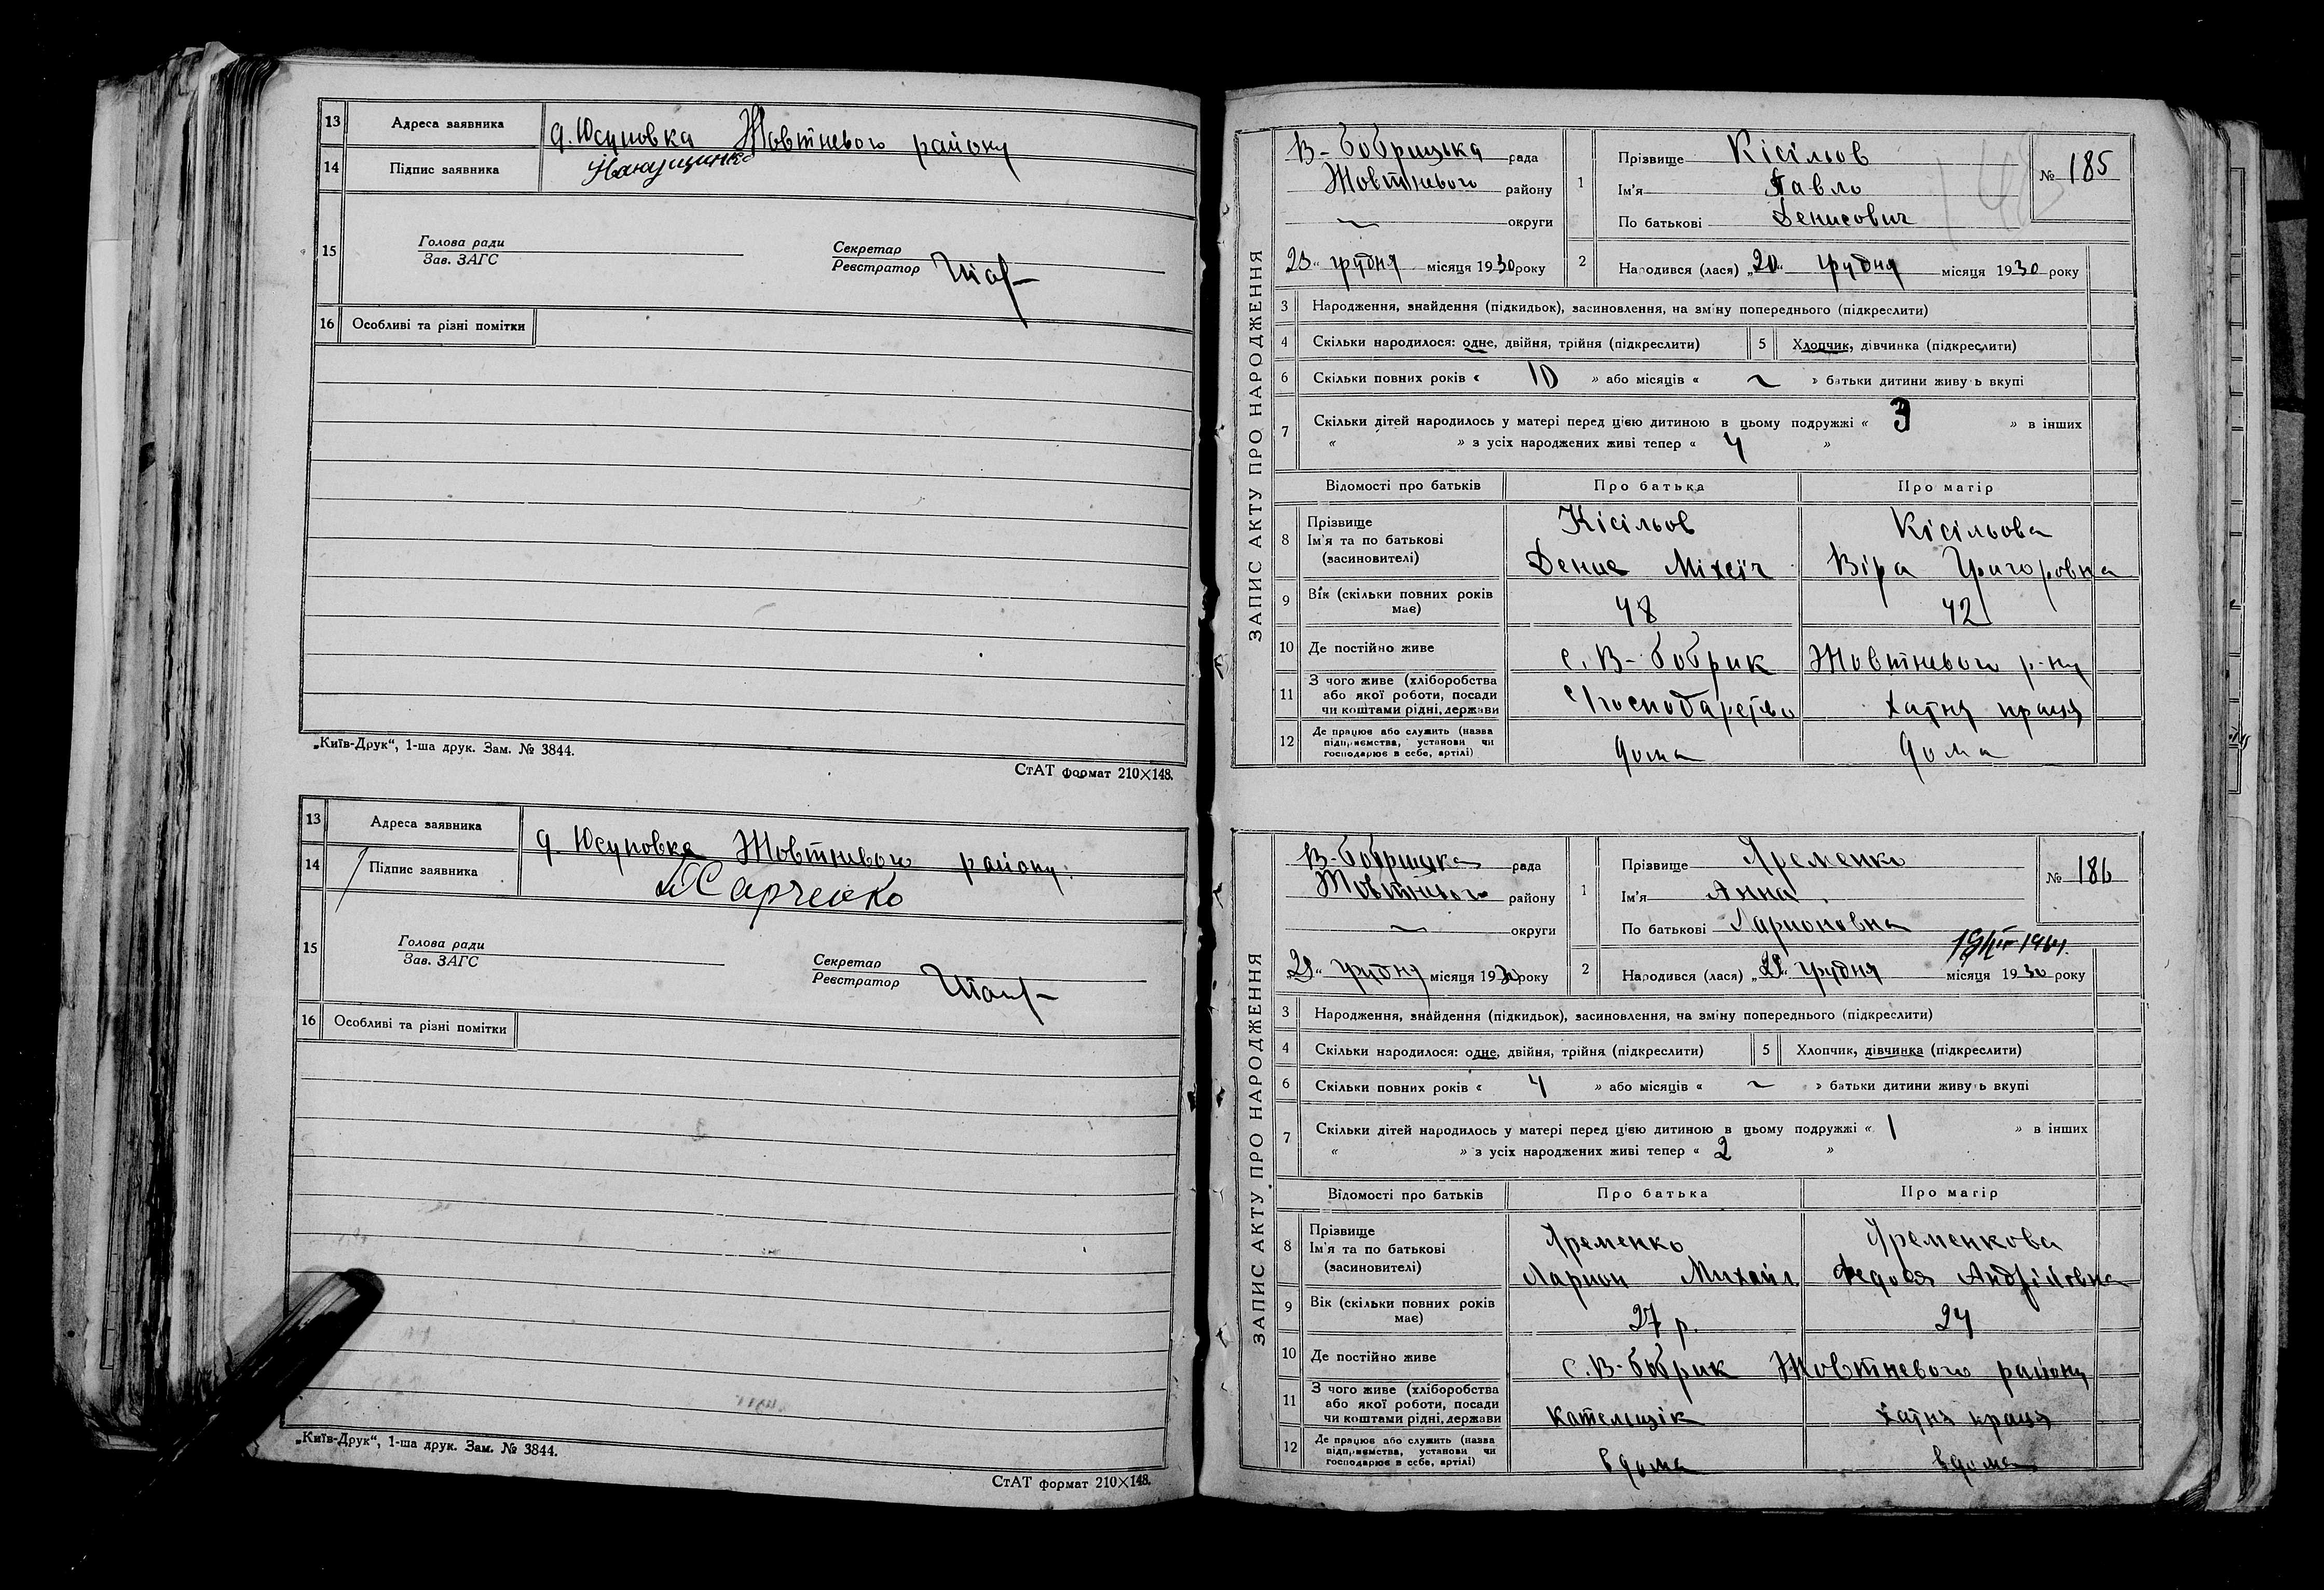 13 Адреса заявника д. Юсуповка Жовтневого району
14 Підпис заявника
15 Голова ради
Зав. ЗАГС
Секретар
Реєстратор
16 Особливі та різні помітки
„Київ-Друк“, 1-ша друк. Зам. № 3844.
СтАТ формат 210×148.
13 Адреса заявника д. Юсуповка Жовтневого району.
14 Підпис заявника
15 Голова ради
Зав. ЗАГС
Секретар
Реєстратор
16 Особливі та різні помітки
„Київ-Друк“, 1-ша друк. Зам. № 3844.
СтАТ формат 210×148.
ЗАПИС АКТУ ПРО НАРОДЖЕННЯ
В-Бобрицька рада
Жовтневого району
округи
23 „ грудня місяця 1930 року
1 Прізвище Кісільов
Ім'я Павло
По батькові Денисович
№ 185
2 Народився (лася) „20“ грудня місяця 1930 року
3 Народження, знайдення (підкидьок), засиновлення, на зміну попереднього (підкреслити)
4 Скільки народилося: одне, двійня, трійня (підкреслити) 5 Хлопчик, дівчинка (підкреслити)
6 Скільки повних років « 10 » або місяців « ~ » батьки дитини живуть вкупі
7 Скільки дітей народилось у матері перед цією дитиною в цьому подружжі « 3 » в інших
« » з усіх народжених живі тепер « 4 »
Відомості про батьків Про батька Про матір
8 Прізвище Кісільов Кісільова
Ім'я та по батькові
(засиновителі) Денис Міхеїч Віра Григоровна
9 Вік (скільки повних років має) 48 42
10 Де постійно живе с. В-Бобрик Жовтневого р-ну
11 З чого живе (хліборобства або якої роботи, посади чи коштами рідні, держави Господарство хатня праця
12 Де працює або служить (назва підприємства, установи чи господарює в себе, артілі) дома дома
ЗАПИС АКТУ ПРО НАРОДЖЕННЯ
В-Бобрицька рада
Жовтневого району
округи
„ грудня місяця 1930 року
1 Прізвище Яременко
Ім'я Анна
По батькові Ларионовна
№ 186
2 Народився (лася) „ “ грудня місяця 1930 року
3 Народження, знайдення (підкидьок), засиновлення, на зміну попереднього (підкреслити)
4 Скільки народилося: одне, двійня, трійня (підкреслити) 5 Хлопчик, дівчинка (підкреслити)
6 Скільки повних років « 4 » або місяців « ~ » батьки дитини живуть вкупі
7 Скільки дітей народилось у матері перед цією дитиною в цьому подружжі « 1 » в інших
« » з усіх народжених живі тепер « 2 »
Відомості про батьків Про батька Про матір
8 Прізвище Яременко Яременкова
Ім'я та по батькові
(засиновителі) Ларион Михайл Федося Андріловна
9 Вік (скільки повних років має) 27 р. 24
10 Де постійно живе с. В-Бобрик Жовтневого району
11 З чого живе (хліборобства або якої роботи, посади чи коштами рідні, держави Кательщік хатня праця
12 Де працює або служить (назва підприємства, установи чи господарює в себе, артілі) вдома вдома